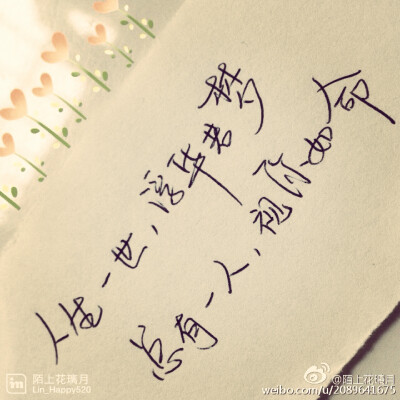 人生一世，浮华若梦
总有一人，视你如命
in 陌上花璃月
Lin_Happy520
@陌上花璃月
weibo.com/u/2089641675